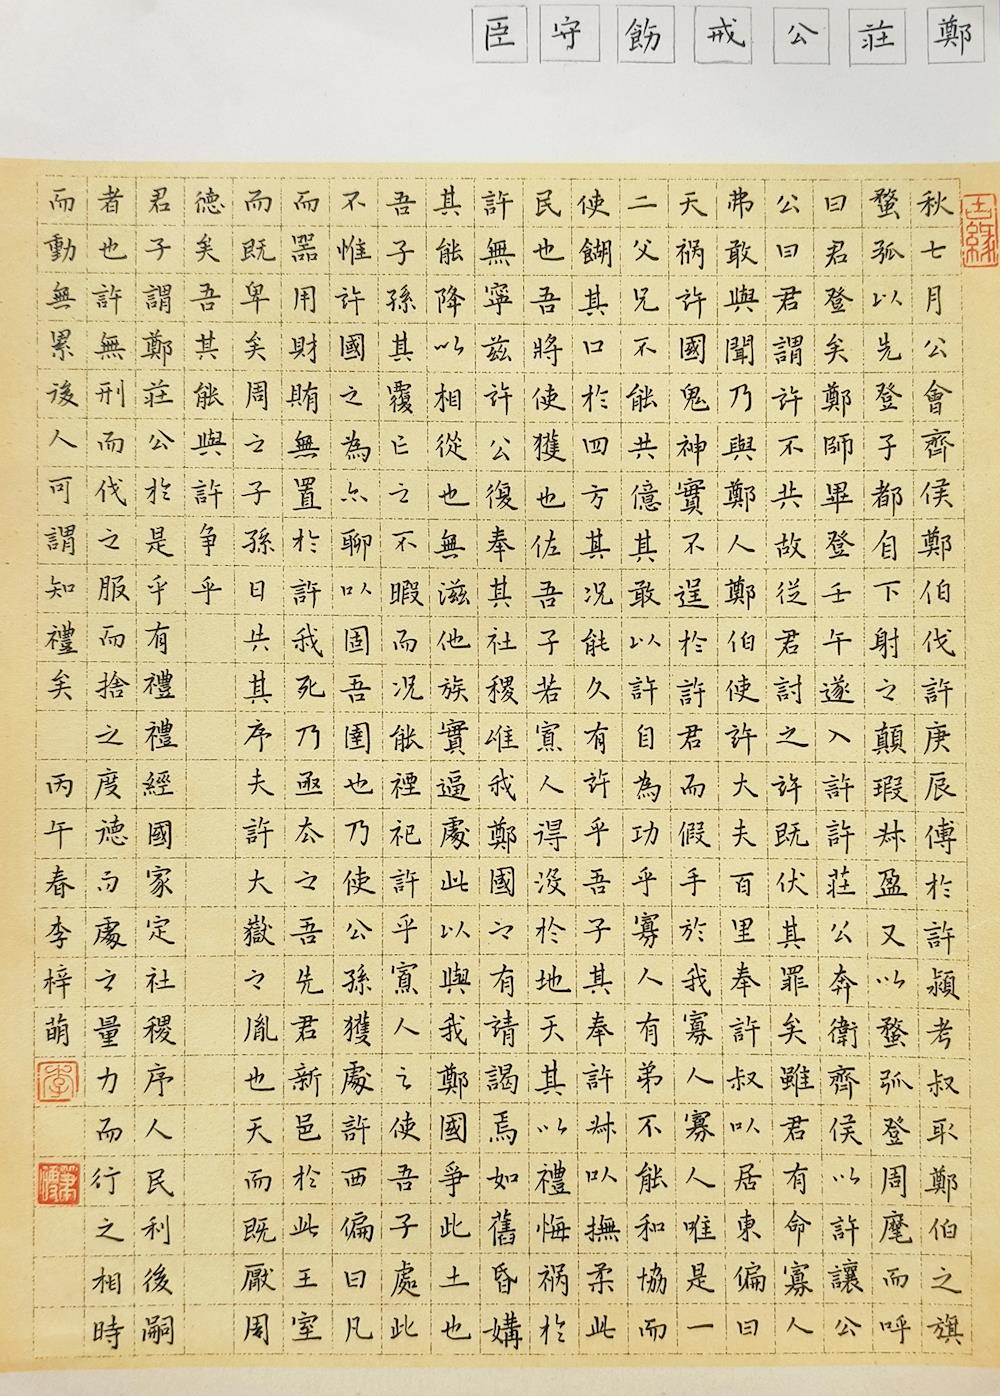 鄭莊公戒飭守臣
秋七月公會齊侯鄭伯伐許庚辰傅於許潁考叔取鄭伯之旗
蝥弧以先登子都自下射之顛瑕叔盈又以蝥弧登周麾而呼
曰君登矣鄭師畢登壬午遂入許許莊公奔衛齊侯以許讓公
公曰君謂許不共故從君討之許既伏其罪矣雖君有命寡人
弗敢與聞乃與鄭人鄭伯使許大夫百里奉許叔以居東偏曰
天祸許國鬼神實不逞於許君而假手於我寡人寡人唯是一
二父兄不能共億其敢以許自為功乎寡人有弟不能和協而
使餬其口於四方其况能久有許乎吾子其奉許叔以撫柔此
民也吾將使獲也佐吾子若寡人得沒於地天其以禮悔祸於
許無寧茲許公復奉其社稷唯我鄭國之有請謁焉如舊昏媾
其能降以相從也無滋他族實逼處此以與我鄭國爭此土也
吾子孫其覆亡之不暇而况能禋祀許乎寡人之使吾子處此
不惟許國之為亦聊以固吾圉也乃使公孫獲處許西偏曰凡
而器用財賄無置於許我死乃亟去之吾先君新邑於此王室
而既卑矣周之子孫日失其序夫許大嶽之胤也天而既厭周
德矣吾其能與許爭乎
君子謂鄭莊公於是乎有禮禮經國家定社稷序人民利後嗣
者也許無刑而伐之服而捨之度德而處之量力而行之相時
而動無累後人可謂知禮矣 丙午春李梓萌
李